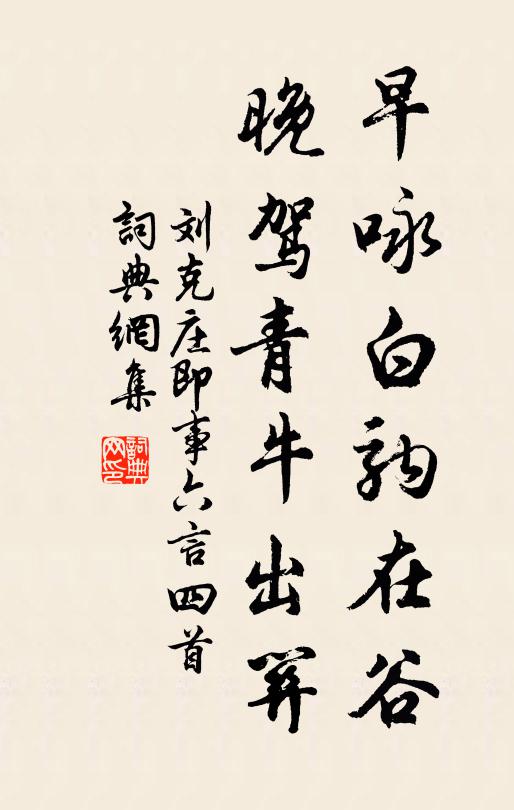 早咏白驹在谷
晚驾青牛出关
刘克庄即事六言四首
詞典網集
詞典
网印